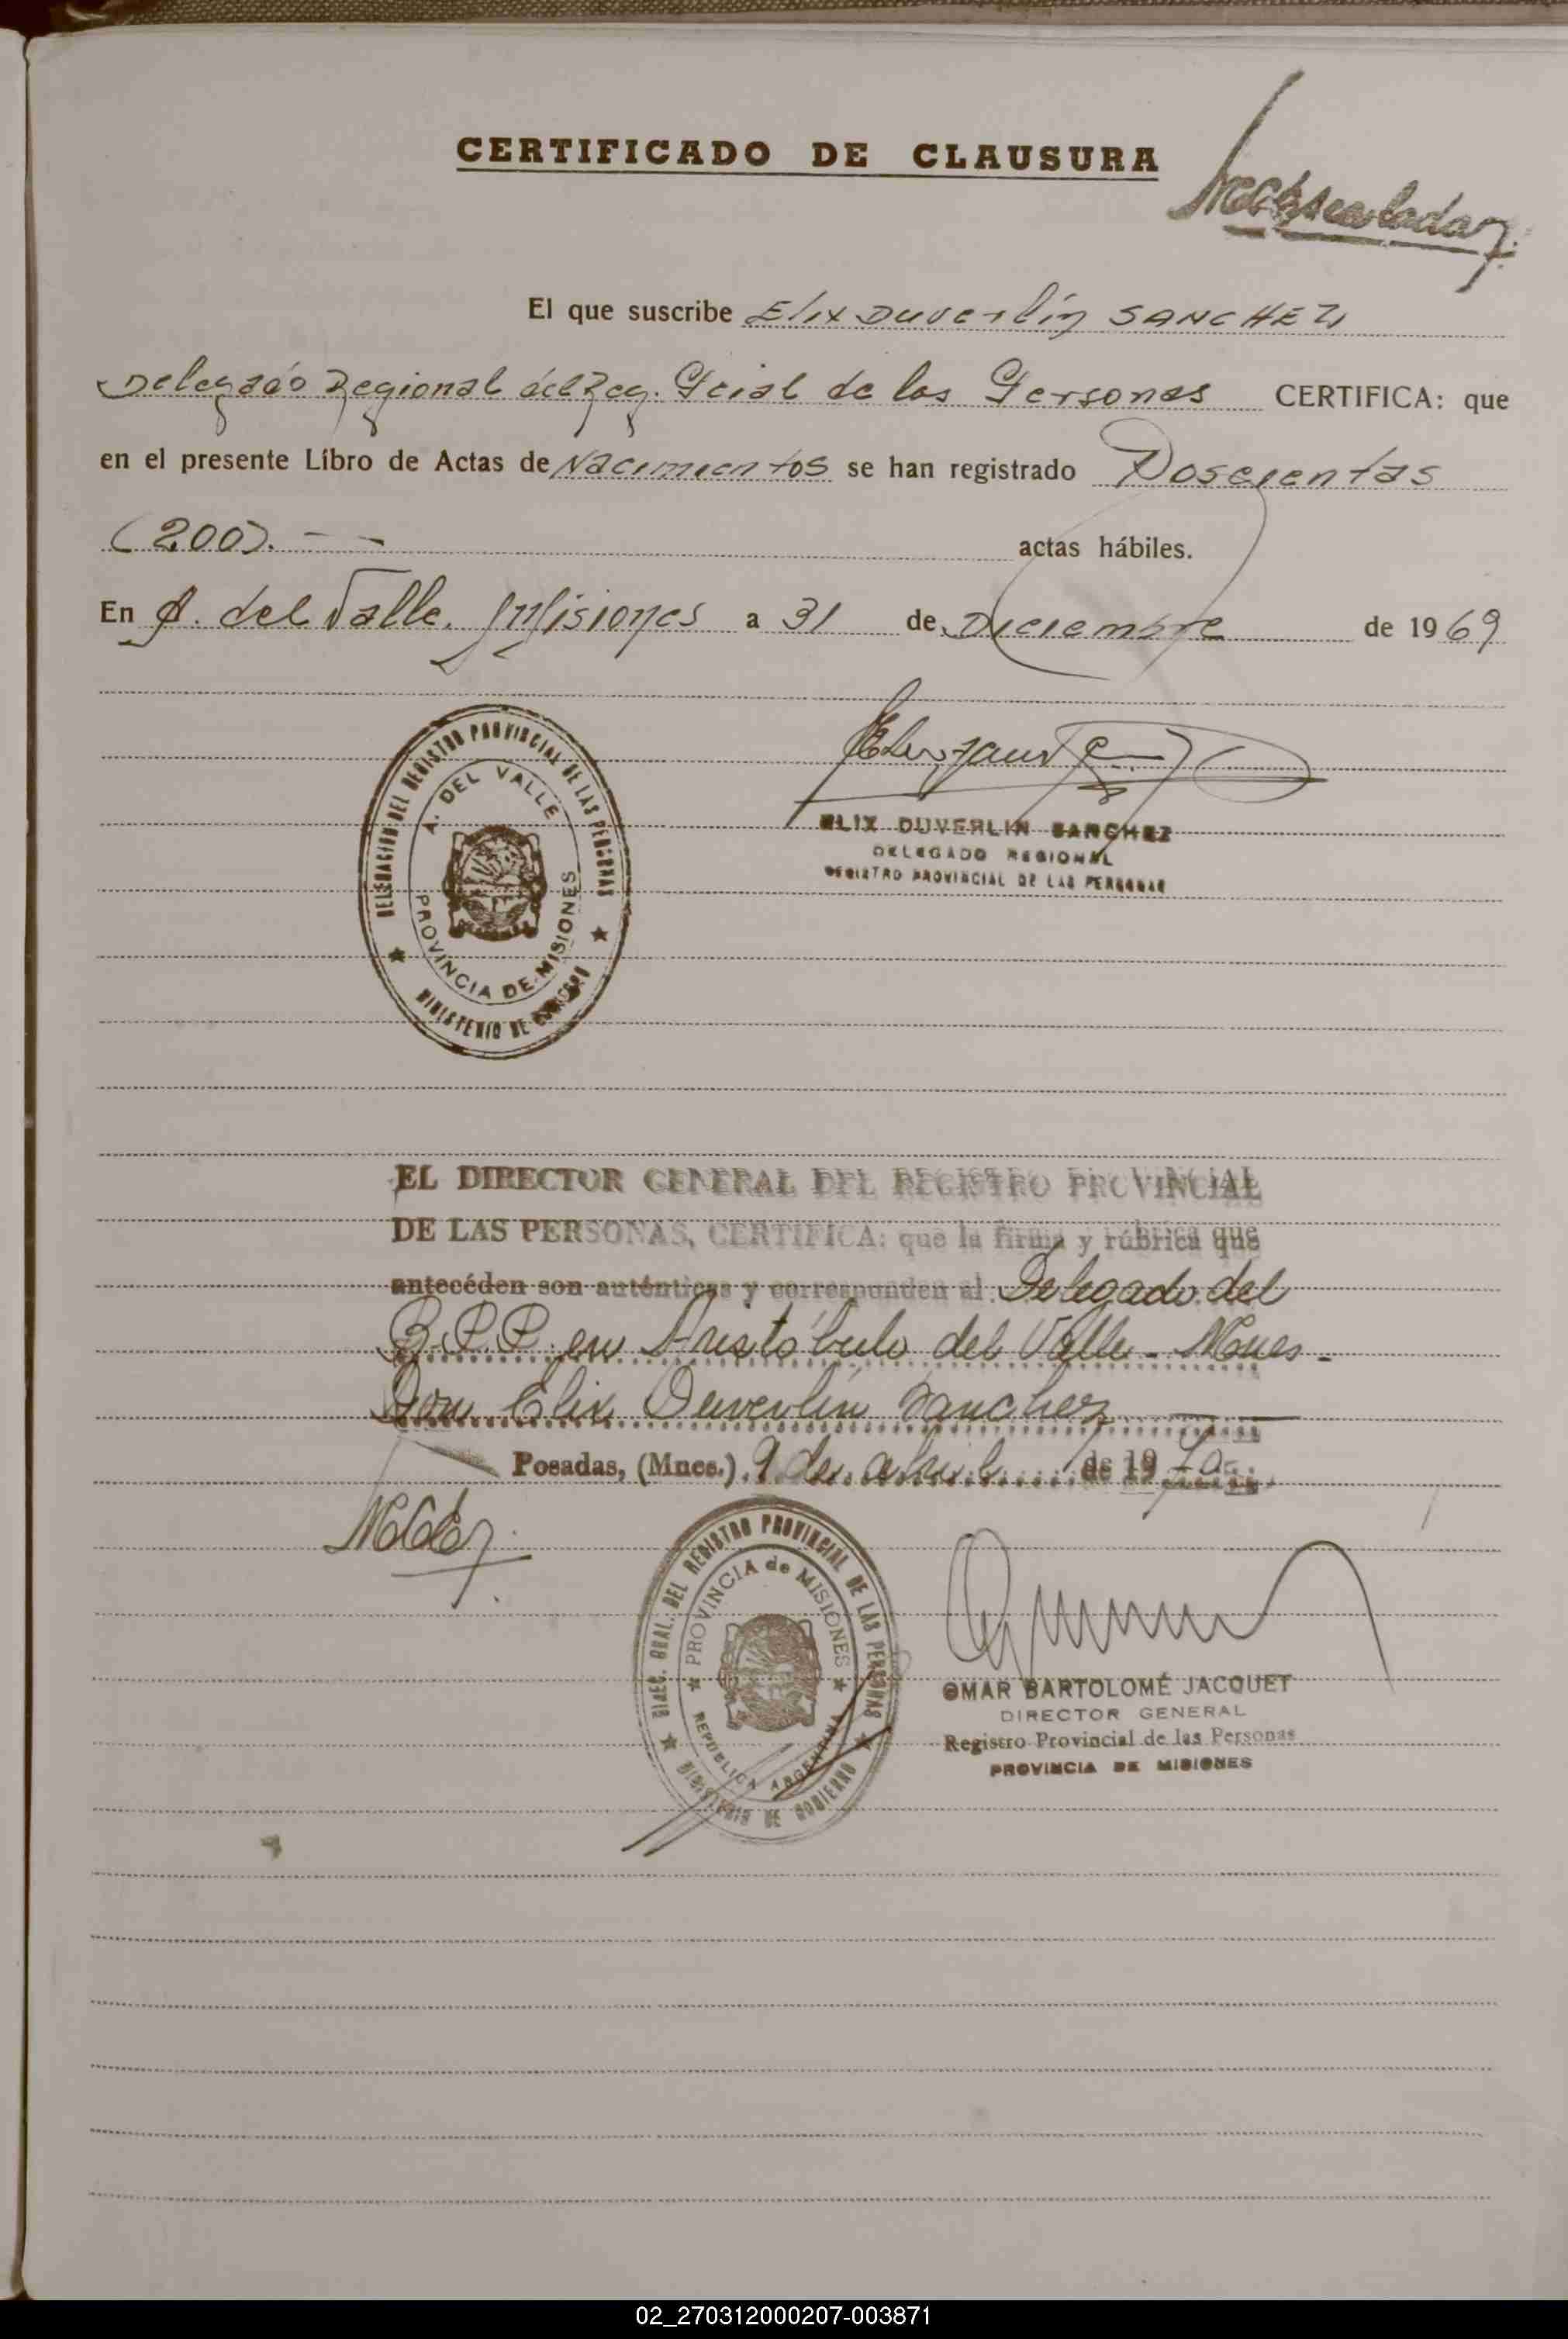 CERTIFICADO DE CLAUSURA
El que suscribe Elix Duverlin SANCHEZ
Delegado Regional del Reg. Pcial de las Personas CERTIFICA: que
en el presente Libro de Actas de Nacimientos se han registrado Doscientas
(200). - -
actas hábiles.
En A. del Valle. Misiones a 31 de Diciembre de 1969
DELEGACION DEL REGISTRO PROVINCIAL DE LAS PERSONAS
A. DEL VALLE
PROVINCIA DE MISIONES
MINISTERIO DE GOBIERNO
ELIX DUVERLIN SANCHEZ
DELEGADO REGIONAL
REGISTRO PROVINCIAL DE LAS PERSONAS
EL DIRECTOR GENERAL DEL REGISTRO PROVINCIAL
DE LAS PERSONAS, CERTIFICA: que la firma y rúbrica que
antecéden son auténticas y corresponden al Delegado del
R.P.P. en Aristóbulo del Valle - Mnes -
Don Elix Duverlin Sanchez
Posadas, (Mnes.) 9 de abril de 1970
DIREC. GRAL. DEL REGISTRO PROVINCIAL DE LAS PERSONAS
PROVINCIA de MISIONES
REPUBLICA ARGENTINA
MINISTERIO DE GOBIERNO
OMAR BARTOLOMÉ JACQUET
DIRECTOR GENERAL
Registro Provincial de las Personas
PROVINCIA DE MISIONES
02_270312000207-003871